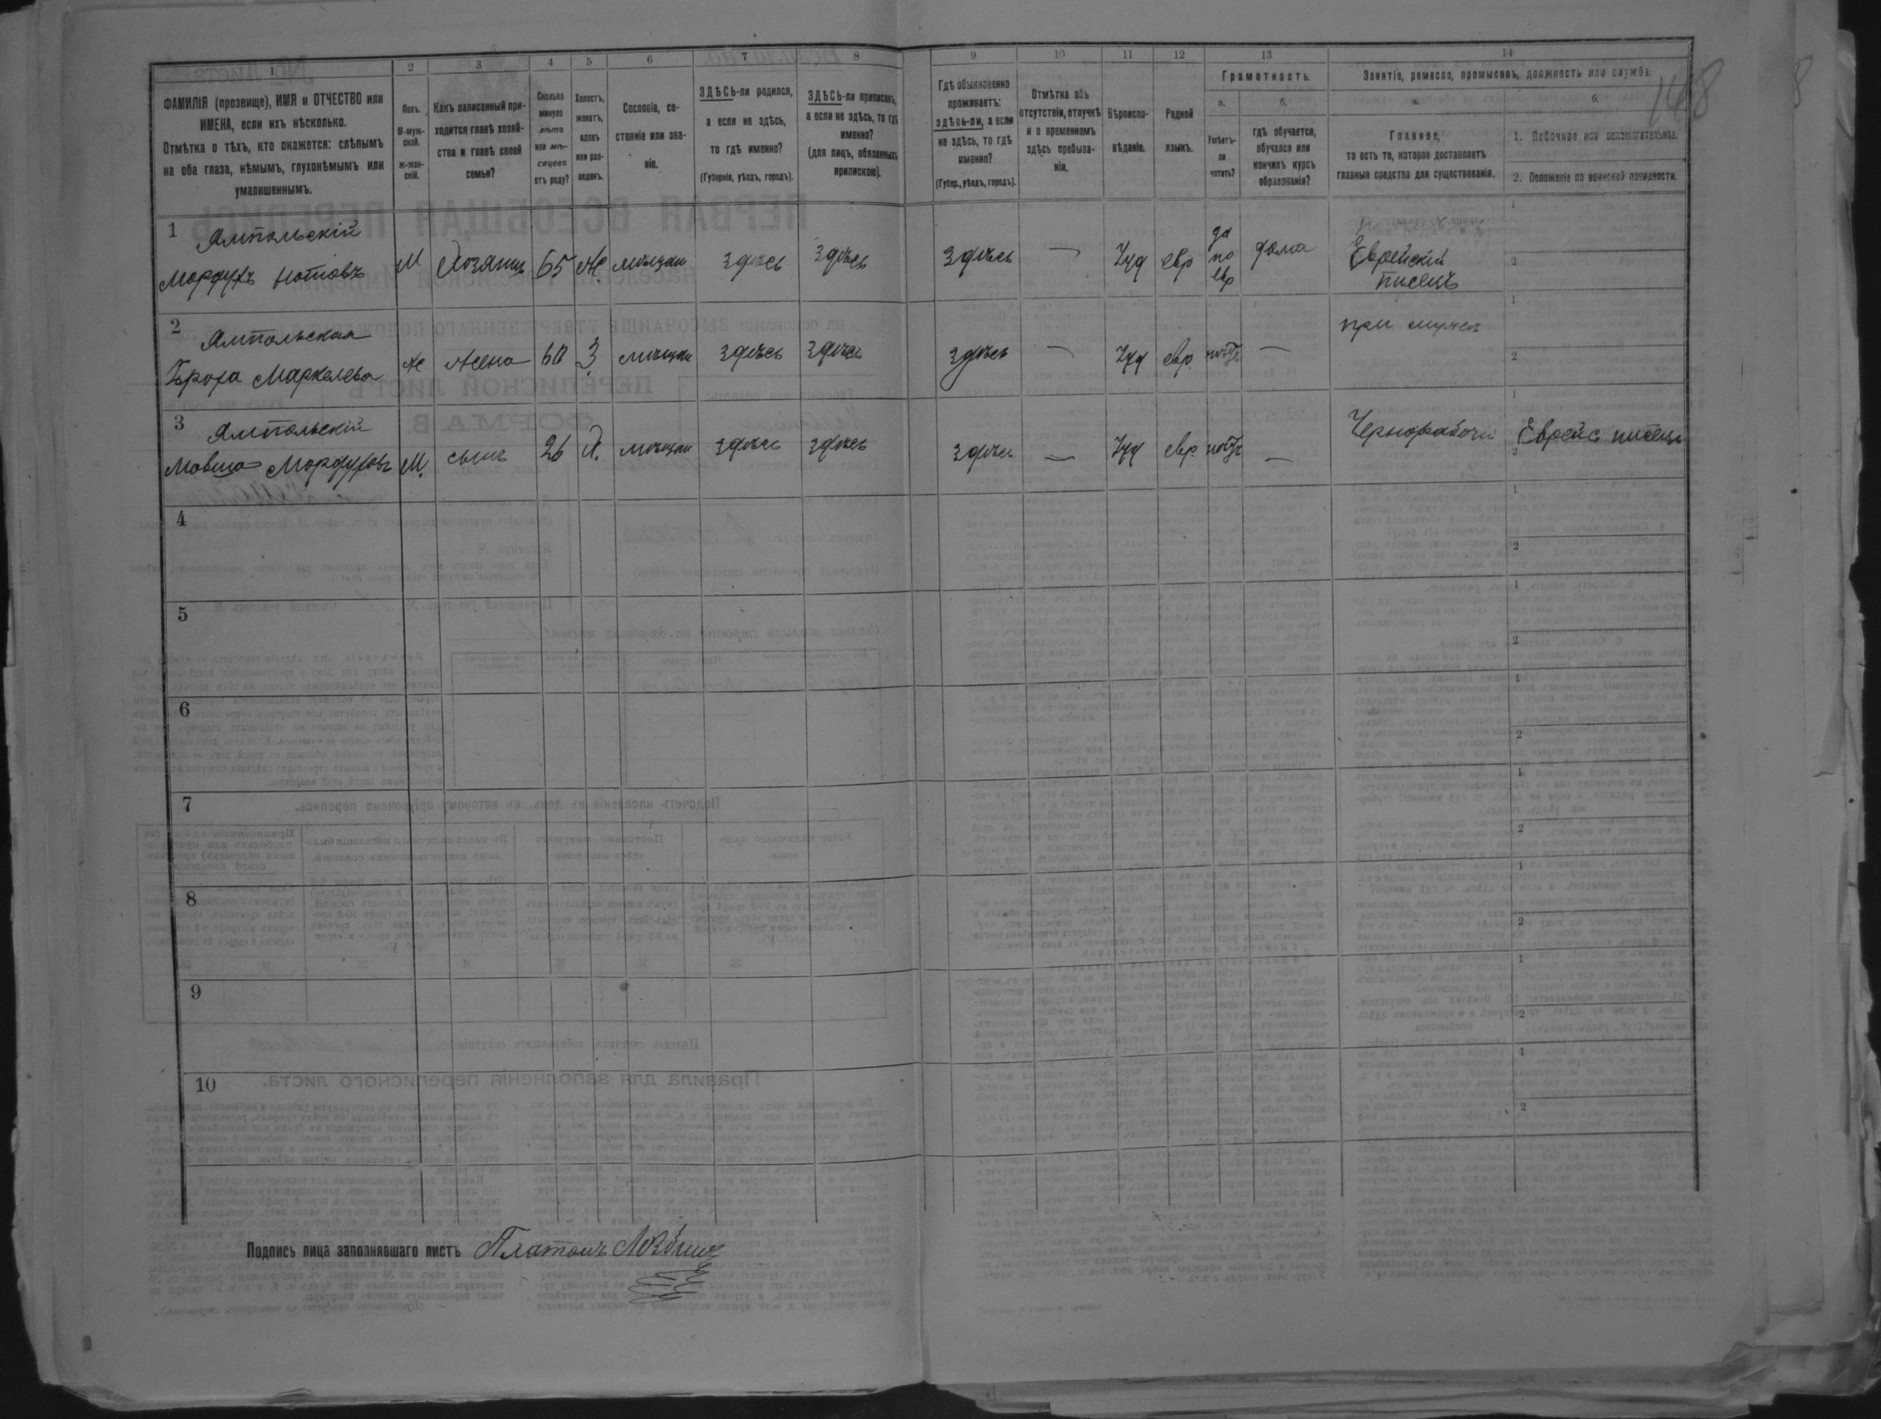 148
1 2 3 4 5 6 7 8 9 10 11 12 13 14
ФАМИЛІЯ (прозвище), ИМЯ и ОТЧЕСТВО или
ИМЕНА, если ихъ нѣсколько.
Отмѣтка о тѣхъ, кто окажется: слѣпымъ
на оба глаза, нѣмымъ, глухонѣмымъ или
умалишеннымъ.
Полъ.
М-муж-
ской.
Ж-жен-
скій.
Какъ записанный при-
ходится главѣ хозяй-
ства и главѣ своей
семьи?
Сколько
минуло
лѣтъ
или мѣ-
сяцевъ
отъ роду?
Холостъ,
женатъ,
вдовъ
или раз-
веденъ.
Сословіе, со-
стояніе или зва-
ніе.
ЗДѢСЬ-ли родился,
а если не здѣсь,
то гдѣ именно?
(Губернія, уѣздъ, городъ).
ЗДѢСЬ-ли приписанъ,
а если не здѣсь, то гдѣ
именно?
(для лицъ, обязанныхъ
припискою).
Гдѣ обыкновенно
проживаетъ:
здѣсь-ли, а если
не здѣсь, то гдѣ
именно?
(Губер., уѣздъ, городъ).
Отмѣтка объ
отсутствіи, отлучкѣ
и о временномъ
здѣсь пребыва-
ніи.
Вѣроиспо-
вѣданіе.
Родной
языкъ.
Грамотность.
а.
Умѣетъ-
ли
читать?
б.
гдѣ обучается,
обучался или
кончилъ курсъ
образованія?
Занятіе, ремесло, промыселъ, должность или служба.
а.
Главное,
то есть то, которое доставляетъ
главныя средства для существованія.
б.
1. Побочное или вспомогательное.
2. Положеніе по воинской повинности.
1 Ямпольскій
Мордухъ Нотовъ М Хозяинъ 65 Ж. мѣщан здѣсь здѣсь здѣсь — Іуд евр да по евр дома Еврейскій писецъ
2 Ямпольская
Броха Маркелева Ж Жена 60 З мѣщан здѣсь здѣсь здѣсь — Іуд евр. нѣтъ — при мужѣ
3 Ямпольскій
Мовша Мордуховъ М. сынъ 26 Х. мѣщан здѣсь здѣсь здѣсь — Іуд евр. нѣтъ — Чернорабочій Еврейс писецъ
4
5
6
7
8
9
10
Подпись лица заполнявшаго листъ Платонъ